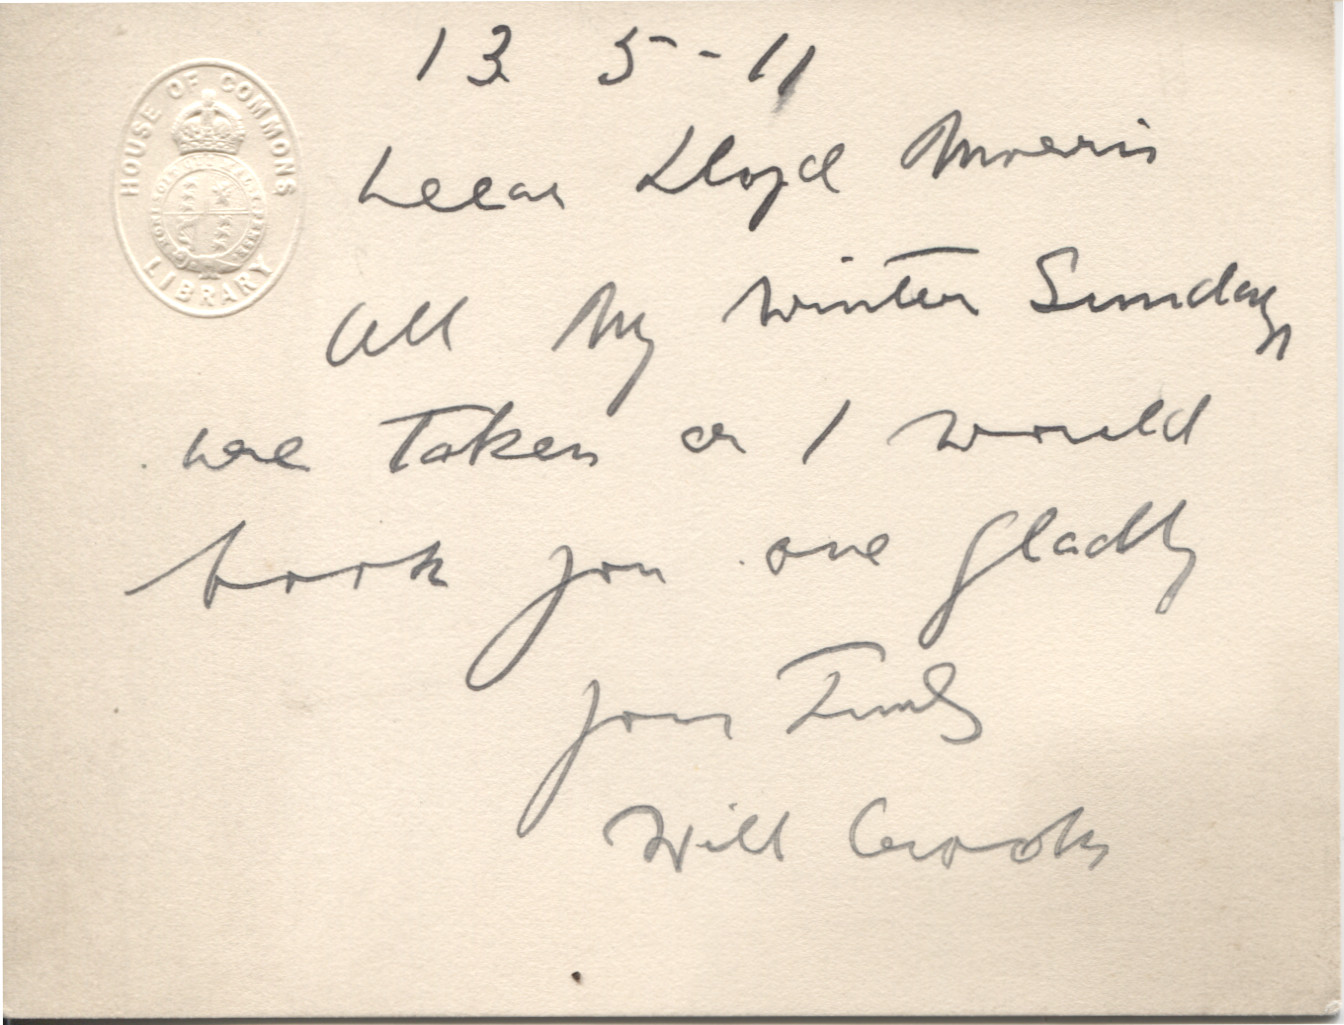 HOUSE OF COMMONS
LIBRARY
13 5-11
Dear Lloyd Morris
All my winter Sundays
are taken or I would
book you one gladly
Yours Truly
Will Crooks